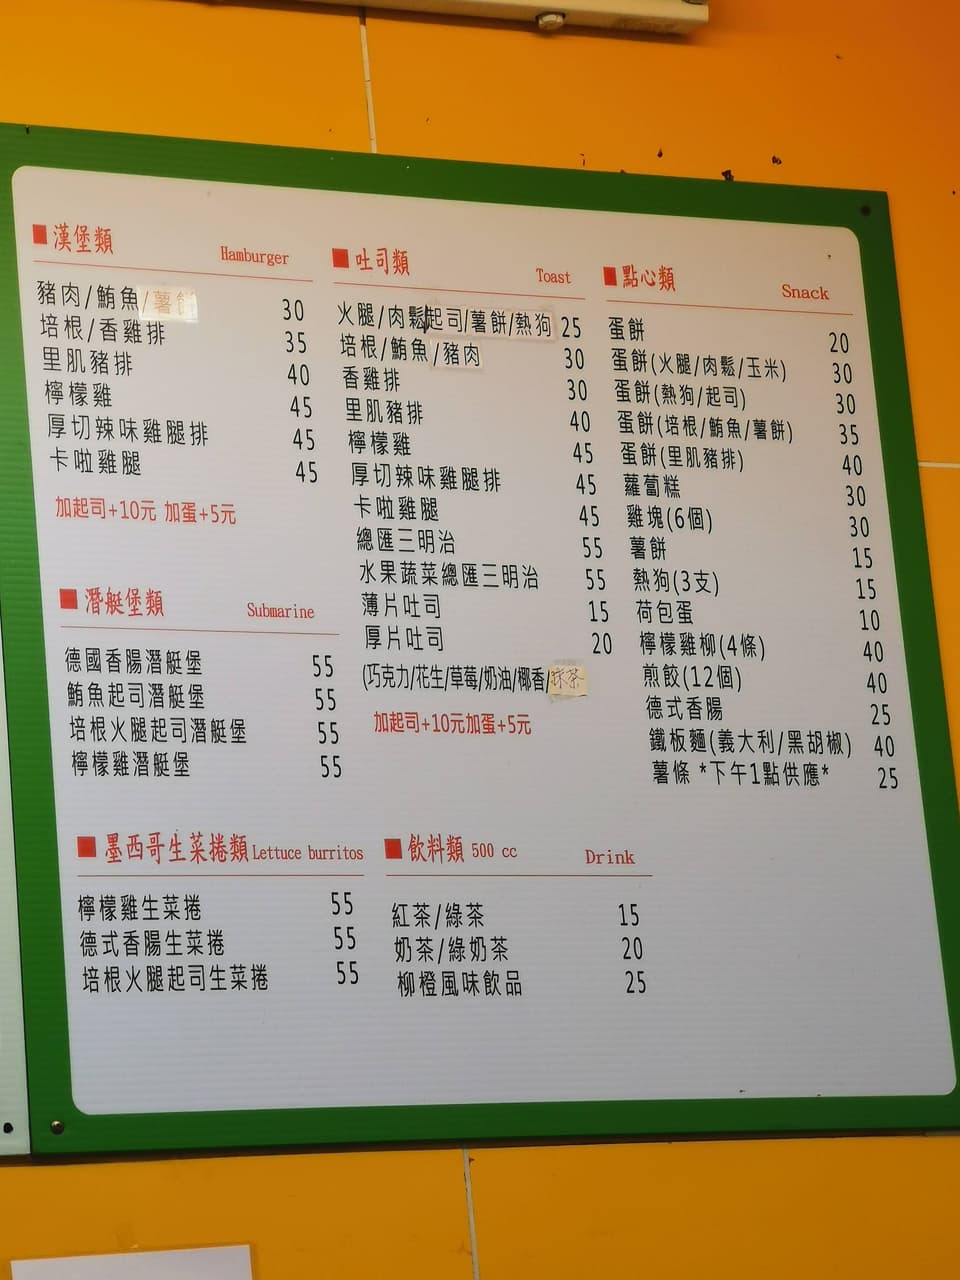 ■漢堡類 Hamburger
豬肉/鮪魚/薯餅 30
培根/香雞排 35
里肌豬排 40
檸檬雞 45
厚切辣味雞腿排 45
卡啦雞腿 45
加起司+10元 加蛋+5元
■潛艇堡類 Submarine
德國香腸潛艇堡 55
鮪魚起司潛艇堡 55
培根火腿起司潛艇堡 55
檸檬雞潛艇堡 55
■吐司類 Toast
火腿/肉鬆/起司/薯餅/熱狗 25
培根/鮪魚/豬肉 30
香雞排 30
里肌豬排 40
檸檬雞 45
厚切辣味雞腿排 45
卡啦雞腿 45
總匯三明治 55
水果蔬菜總匯三明治 55
薄片吐司 15
厚片吐司 20
(巧克力/花生/草莓/奶油/椰香/抹茶
加起司+10元加蛋+5元
■點心類 Snack
蛋餅 20
蛋餅(火腿/肉鬆/玉米) 30
蛋餅(熱狗/起司) 30
蛋餅(培根/鮪魚/薯餅) 35
蛋餅(里肌豬排) 40
蘿蔔糕 30
雞塊(6個) 30
薯餅 15
熱狗(3支) 15
荷包蛋 10
檸檬雞柳(4條) 40
煎餃(12個) 40
德式香腸 25
鐵板麵(義大利/黑胡椒) 40
薯條 *下午1點供應* 25
■墨西哥生菜捲類 Lettuce burritos
檸檬雞生菜捲 55
德式香腸生菜捲 55
培根火腿起司生菜捲 55
■飲料類 500 cc Drink
紅茶/綠茶 15
奶茶/綠奶茶 20
柳橙風味飲品 25